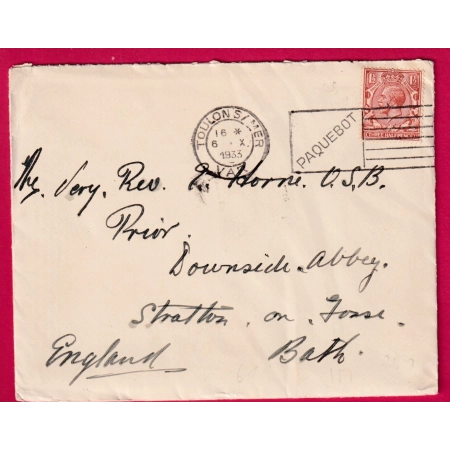 TOULON S/MER
16 *
6 - X
1933
VAR
PAQUEBOT
The Very. Rev. E. Horne. O.S.B.
Prior.
Downside. Abbey.
Stratton. on. Fosse.
England Bath.